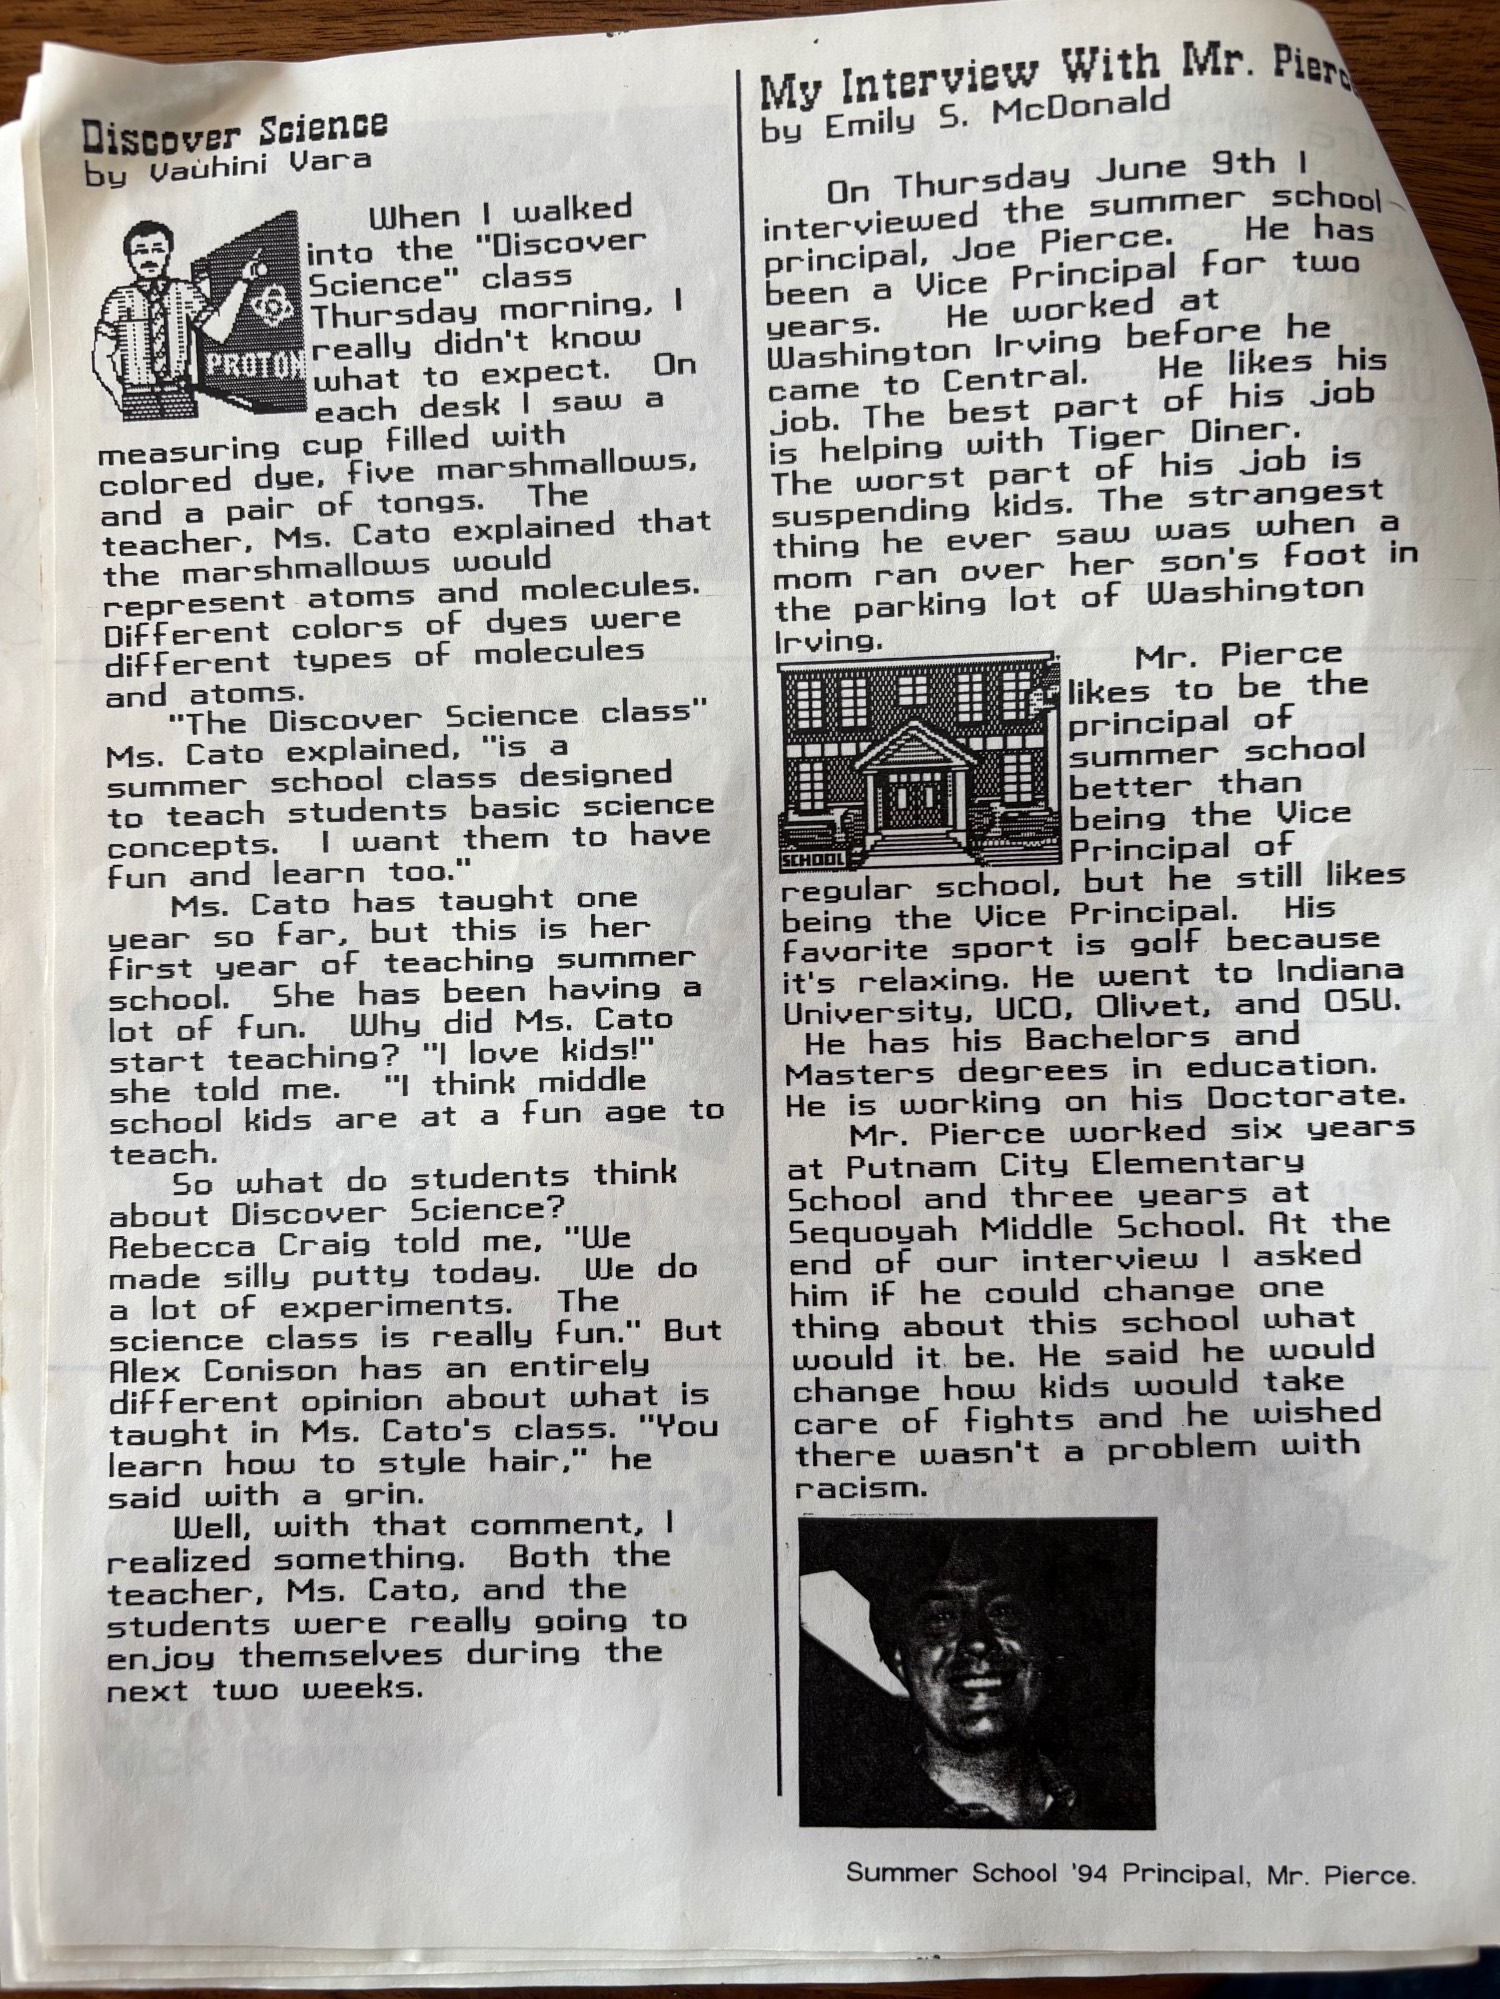 Discover Science
by Vauhini Vara
When I walked
into the "Discover
Science" class
Thursday morning, I
really didn't know
what to expect. On
each desk I saw a
measuring cup filled with
colored dye, five marshmallows,
and a pair of tongs. The
teacher, Ms. Cato explained that
the marshmallows would
represent atoms and molecules.
Different colors of dyes were
different types of molecules
and atoms.
"The Discover Science class"
Ms. Cato explained, "is a
summer school class designed
to teach students basic science
concepts. I want them to have
fun and learn too."
Ms. Cato has taught one
year so far, but this is her
first year of teaching summer
school. She has been having a
lot of fun. Why did Ms. Cato
start teaching? "I love kids!"
she told me. "I think middle
school kids are at a fun age to
teach.
So what do students think
about Discover Science?
Rebecca Craig told me, "We
made silly putty today. We do
a lot of experiments. The
science class is really fun." But
Alex Conison has an entirely
different opinion about what is
taught in Ms. Cato's class. "You
learn how to style hair," he
said with a grin.
Well, with that comment, I
realized something. Both the
teacher, Ms. Cato, and the
students were really going to
enjoy themselves during the
next two weeks.
PROTON
My Interview With Mr. Pierc
by Emily S. McDonald
On Thursday June 9th I
interviewed the summer school
principal, Joe Pierce. He has
been a Vice Principal for two
years. He worked at
Washington Irving before he
came to Central. He likes his
job. The best part of his job
is helping with Tiger Diner.
The worst part of his job is
suspending kids. The strangest
thing he ever saw was when a
mom ran over her son's foot in
the parking lot of Washington
Irving.
Mr. Pierce
likes to be the
principal of
summer school
better than
being the Vice
Principal of
regular school, but he still likes
being the Vice Principal. His
favorite sport is golf because
it's relaxing. He went to Indiana
University, UCO, Olivet, and OSU.
He has his Bachelors and
Masters degrees in education.
He is working on his Doctorate.
Mr. Pierce worked six years
at Putnam City Elementary
School and three years at
Sequoyah Middle School. At the
end of our interview I asked
him if he could change one
thing about this school what
would it be. He said he would
change how kids would take
care of fights and he wished
there wasn't a problem with
racism.
SCHOOL
Summer School '94 Principal, Mr. Pierce.